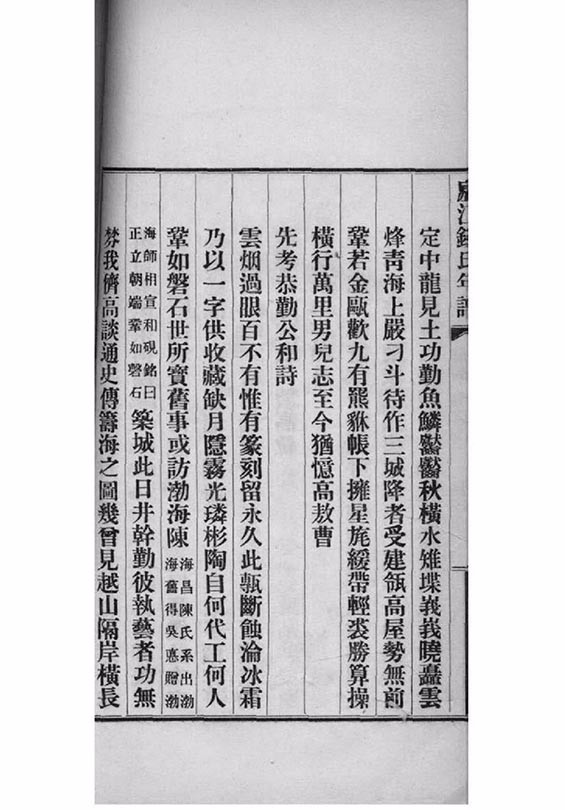 廬江錢氏年譜
定中龍見土功勤魚鱗鬱鬱秋橫水雉堞峩峩曉矗雲
烽靑海上嚴刁斗待作三城降者受建瓴高屋勢無前
鞏若金甌歡九有羆貅帳下擁星旄緩帶輕裘勝算操
橫行萬里男兒志至今猶憶高敖曹
先考恭勤公和詩
雲烟過眼百不有惟有篆刻留永久此瓻斷蝕淪冰霜
乃以一字供收藏缺月隱霧光璘彬陶自何代工何人
鞏如磐石世所寶舊事或訪渤海陳海昌陳氏系出渤
海舊得吳憙贈渤
海師相宣和硯銘曰
正立朝端鞏如磐石築城此日井幹勤彼執藝者功無
棼我儕高談通史傳籌海之圖幾曾見越山隔岸橫長